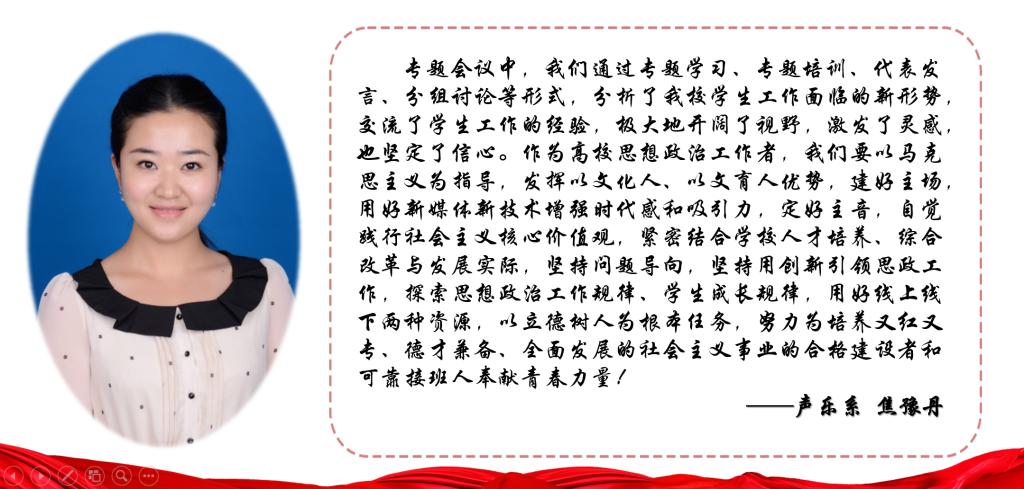 专题会议中，我们通过专题学习、专题培训、代表发
言、分组讨论等形式，分析了我校学生工作面临的新形势，
交流了学生工作的经验，极大地开阔了视野，激发了灵感，
也坚定了信心。作为高校思想政治工作者，我们要以马克
思主义为指导，发挥以文化人、以文育人优势，建好主场，
用好新媒体新技术增强时代感和吸引力，定好主音，自觉
践行社会主义核心价值观，紧密结合学校人才培养、综合
改革与发展实际，坚持问题导向，坚持用创新引领思政工
作，探索思想政治工作规律、学生成长规律，用好线上线
下两种资源，以立德树人为根本任务，努力为培养又红又
专、德才兼备、全面发展的社会主义事业的合格建设者和
可靠接班人奉献青春力量！
——声乐系 焦豫丹